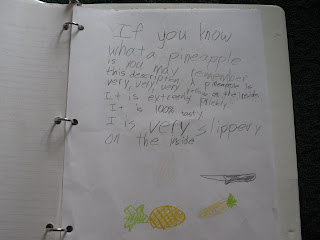 If you know
what a pineapple
is you may remember
this description. A pineapple is
very, very, very yellow on the inside.
It is extremly prickly.
It is 100% tasty.
I is very slippery
on the inside